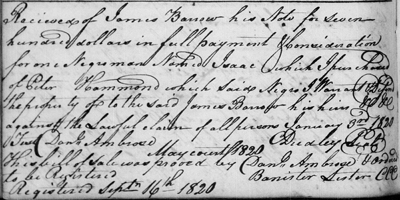 Recieved of James Barrow his Note for seven
hundred dollars in full payment & Consideration
for one Negroman Named Isaac which I purchased
of Peter Hammond which said Negro I Warrant & Defend
the property of to the said James Barrow his heirs
against the Lawful claim of all persons January 3rd 1820
Danl Ambrose Dudley
May court 1820
This bill of Sale was proved by Danl Ambrose & Ordered
to be Registered Banister Lister
Registered Septr 16th 1820